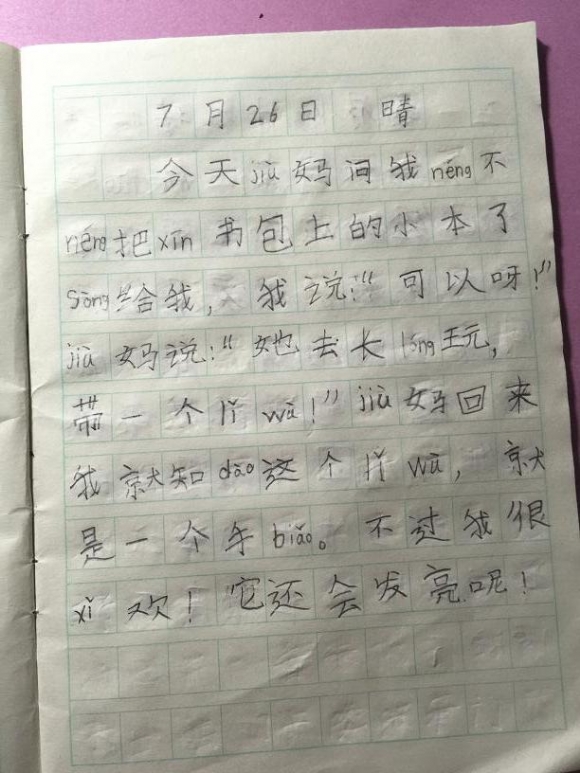 7月26日 晴
今天jiù妈问我néng不
néng把xīn书包上的小本了
sòng给我,我说:“可以呀!”
jiù妈说:“她去长lóng玩,
带一个lǐ wù!”jiù妈回来
我就知dào这个lǐ wù,就
是一个手biǎo。不过我很
xǐ欢!它还会发亮呢!